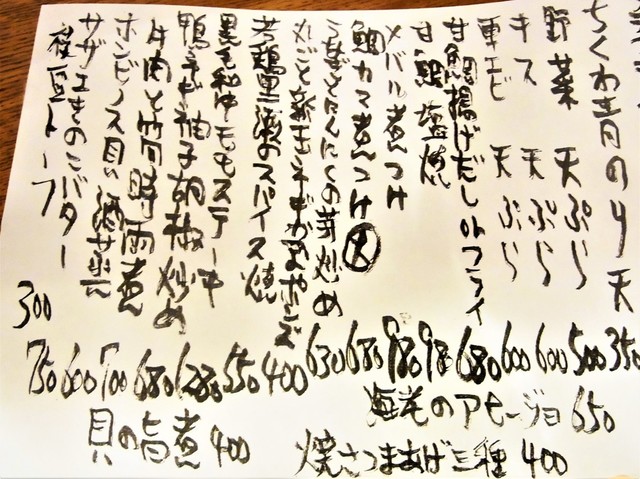 ちくわ青のり天 350
野菜 天ぷら 500
キス 天ぷら 600
車エビ 天ぷら 600
甘鯛揚げだしorフライ 680
甘鯛塩焼 980
メバル煮つけ 980
鯛カマ煮つけ 大 680
にんにくの芽炒め 630
丸ごと新玉ネギ 400
若鶏 のスパイス焼 550
黒毛和牛モモステーキ 1280
鴨ネギ柚子胡椒炒め 680
牛肉と筍時雨煮 700
ホンビノス貝酒蒸し 600
サザエきのこバター 750
枝豆トーフ 300
海老のアヒージョ 650
焼さつまあげ三種 400
貝の旨煮 400